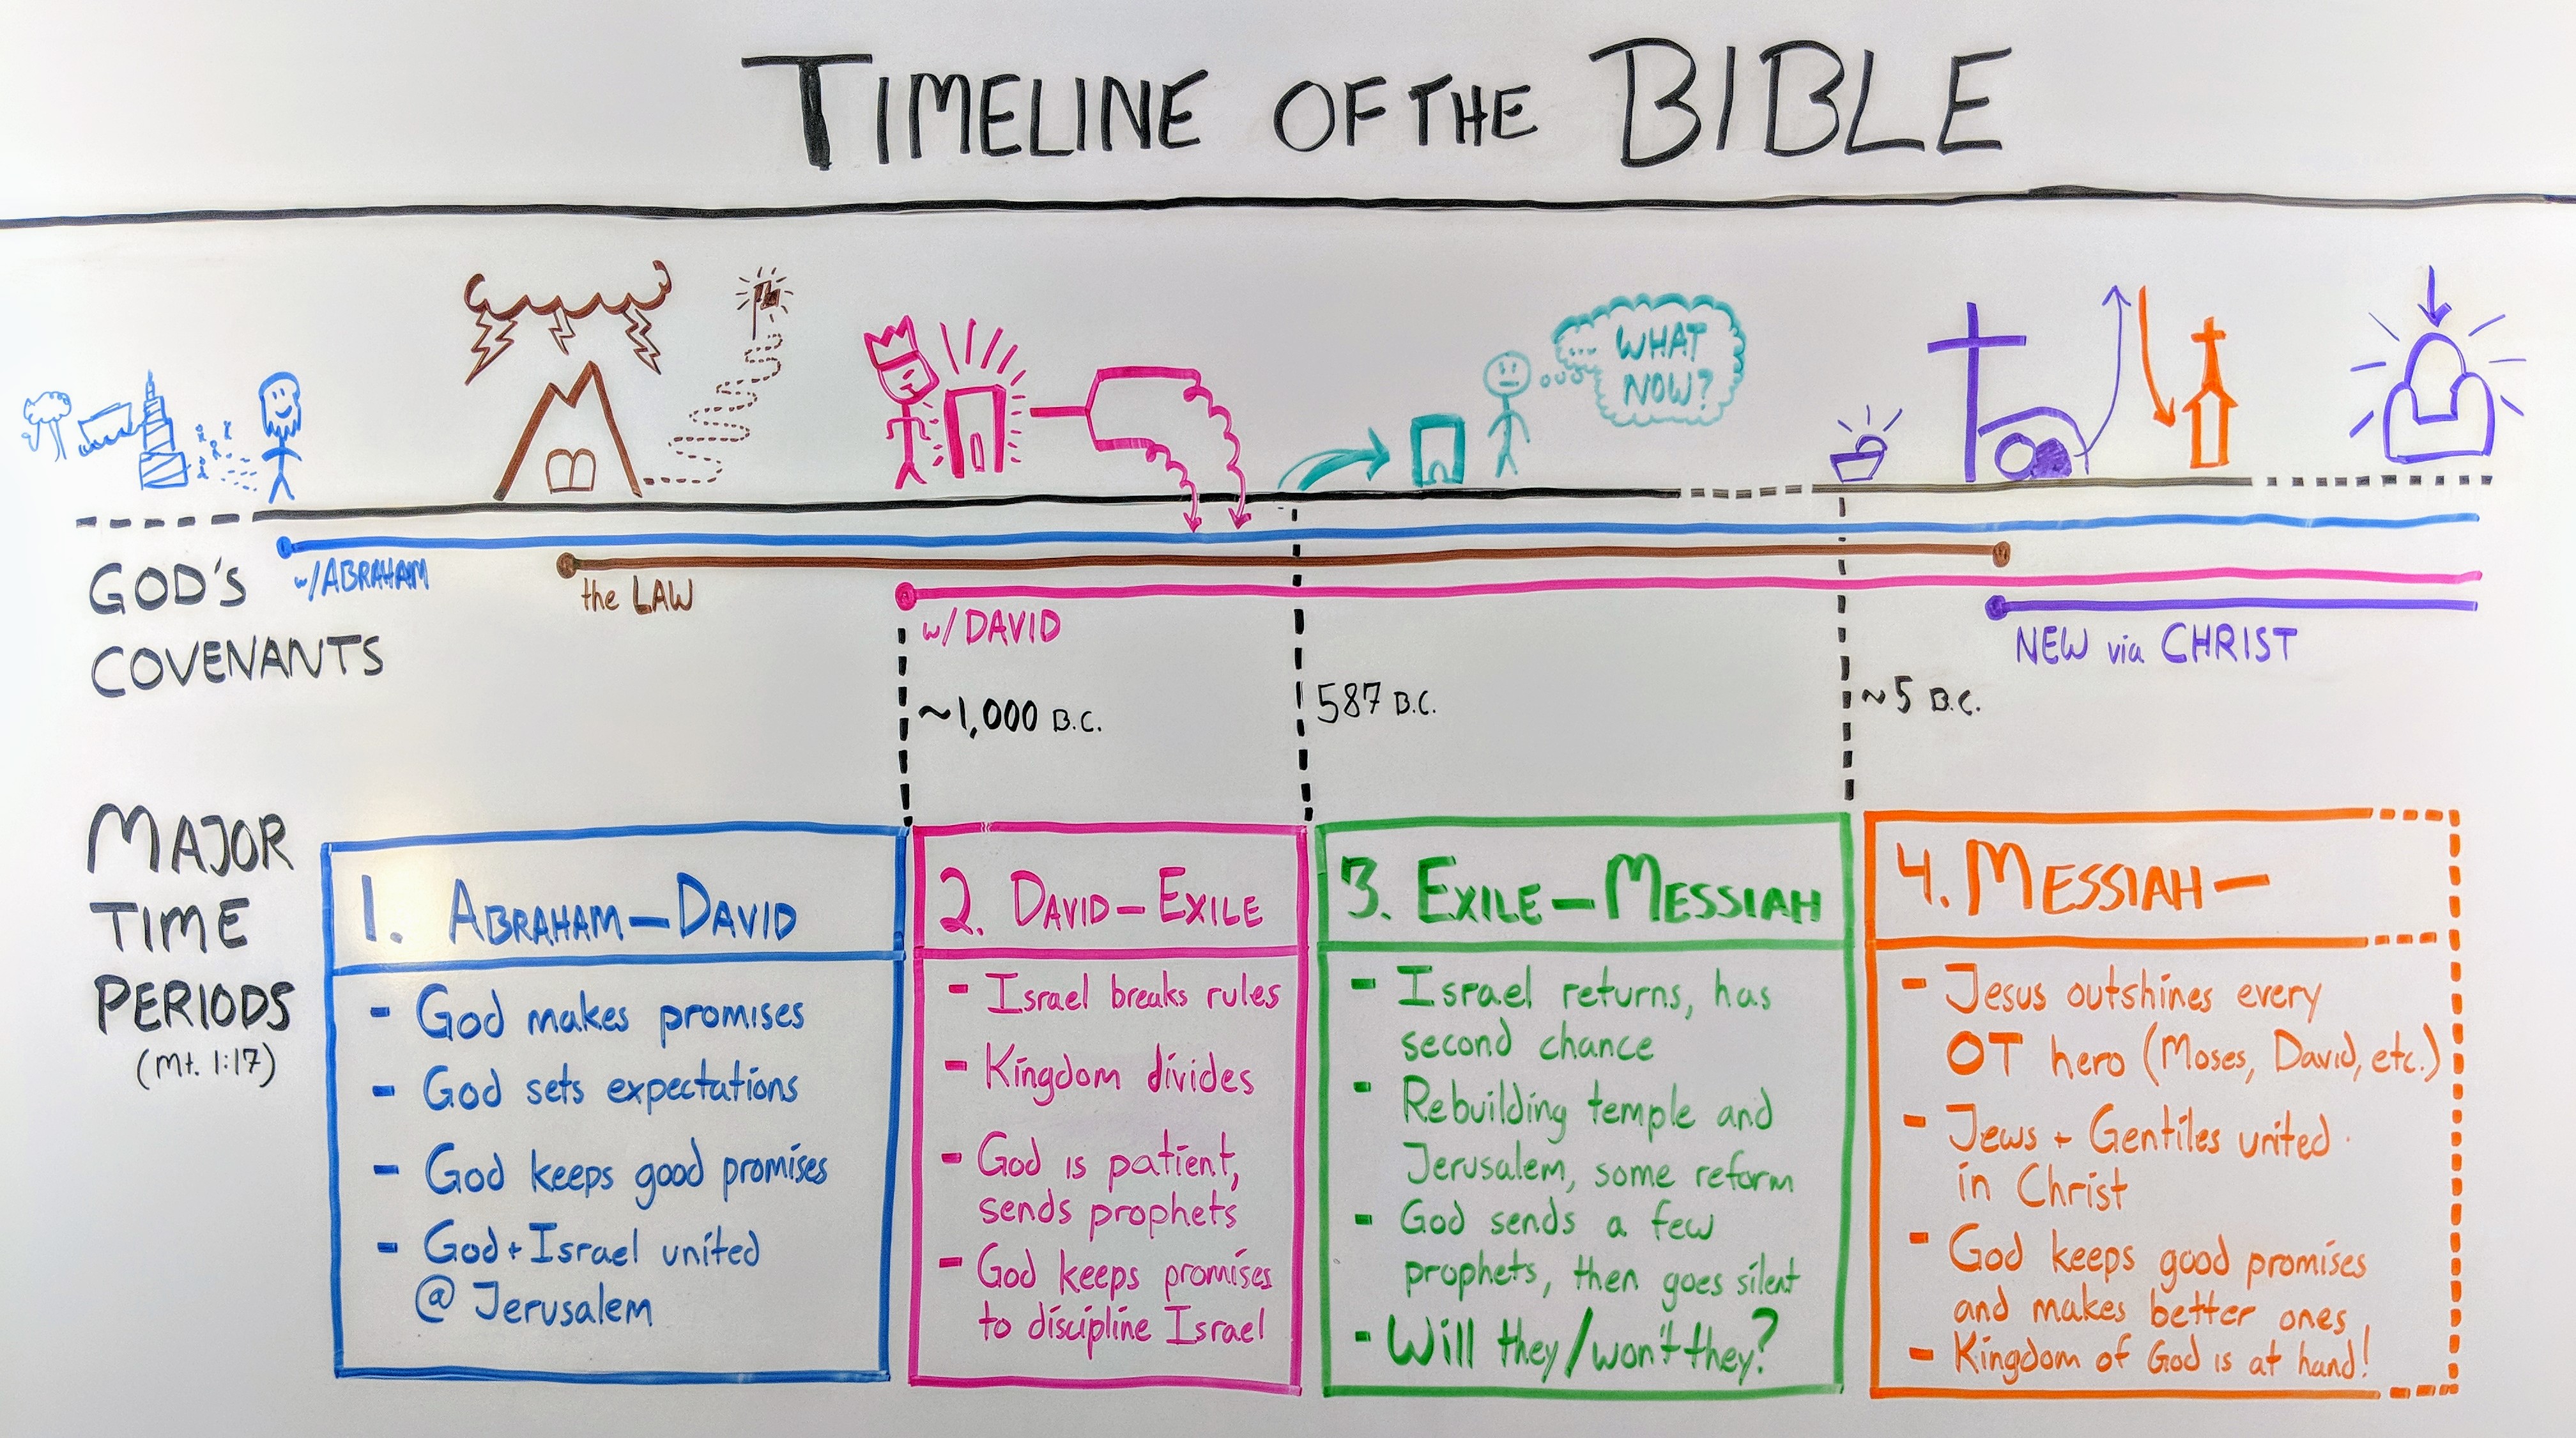 TIMELINE OF THE BIBLE
... WHAT
NOW?
GOD'S
COVENANTS
w/ABRAHAM
the LAW
w/DAVID
NEW via CHRIST
~1,000 B.C.
587 B.C.
~5 B.C.
MAJOR
TIME
PERIODS
(Mt. 1:17)
1. ABRAHAM—DAVID
- God makes promises
- God sets expectations
- God keeps good promises
- God + Israel united
@ Jerusalem
2. DAVID—EXILE
- Israel breaks rules
- Kingdom divides
- God is patient,
sends prophets
- God keeps promises
to discipline Israel
3. EXILE—MESSIAH
- Israel returns, has
second chance
- Rebuilding temple and
Jerusalem, some reform
- God sends a few
prophets, then goes silent
- Will they/won't they?
4. MESSIAH—
- Jesus outshines every
OT hero (Moses, David, etc.)
- Jews + Gentiles united
in Christ
- God keeps good promises
and makes better ones
- Kingdom of God is at hand!